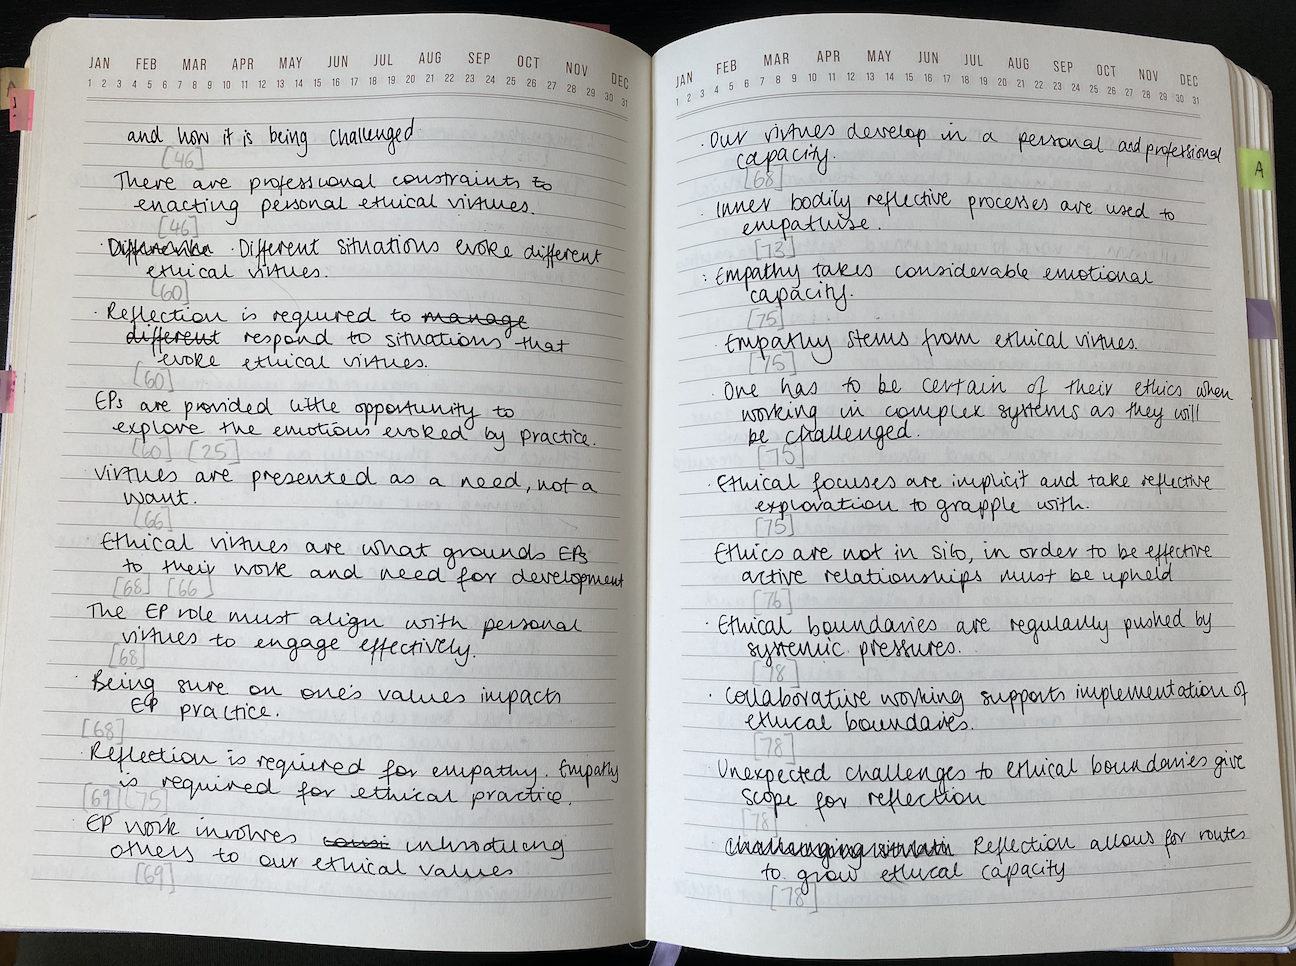 JAN FEB MAR APR MAY JUN JUL AUG SEP OCT NOV DEC
1 2 3 4 5 6 7 8 9 10 11 12 13 14 15 16 17 18 19 20 21 22 23 24 25 26 27 28 29 30 31
and how it is being challenged
[46]
There are professional constraints to
enacting personal ethical virtues.
[46]
· Different situations evoke different
ethical virtues.
[60]
· Reflection is required to manage
different respond to situations that
evoke ethical virtues.
[60]
EPs are provided little opportunity to
explore the emotions evoked by practice.
[60] [25]
Virtues are presented as a need, not a
want.
[66]
· Ethical virtues are what grounds EPs
to their work and need for development
[68] [66]
The EP role must align with personal
virtues to engage effectively.
[68]
· Being sure on one's values impacts
EP practice.
[68]
· Reflection is required for empathy. Empathy
is required for ethical practice.
[69] [75]
· EP work involves introducing
others to our ethical values
[69]
JAN FEB MAR APR MAY JUN JUL AUG SEP OCT NOV DEC
1 2 3 4 5 6 7 8 9 10 11 12 13 14 15 16 17 18 19 20 21 22 23 24 25 26 27 28 29 30 31
· Our virtues develop in a personal and professional
capacity.
[68]
· Inner bodily reflective processes are used to
empathise.
[73]
: Empathy takes considerable emotional
capacity.
[75]
· Empathy stems from ethical virtues.
[75]
· One has to be certain of their ethics when
working in complex systems as they will
be challenged.
[75]
· Ethical focuses are implicit and take reflective
exploration to grapple with.
[75]
Ethics are not in silo, in order to be effective
active relationships must be upheld
[76]
· Ethical boundaries are regularly pushed by
systemic pressures.
[78]
· Collaborative working supports implementation of
ethical boundaries.
[78]
· Unexpected challenges to ethical boundaries give
scope for reflection
[78]
· Reflection allows for routes
to grow ethical capacity
[78]
A